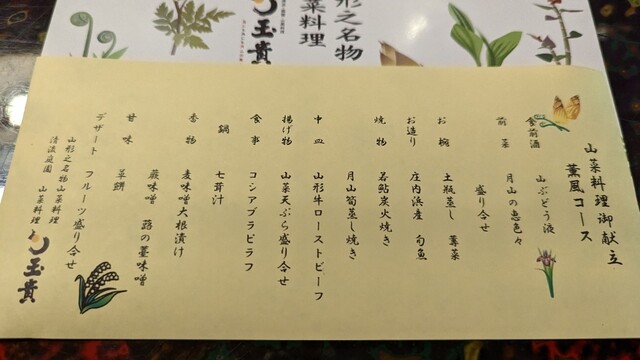 山菜料理御献立
薫風コース
食前酒 山ぶどう液
前菜 月山の恵色々
盛り合せ
お椀 土瓶蒸し 蓴菜
お造り 庄内浜産 旬魚
焼物 若鮎炭火焼き
月山筍蒸し焼き
中皿 山形牛ローストビーフ
揚げ物 山菜天ぷら盛り合せ
食事 コシアブラピラフ
鍋 七茸汁
香物 麦味噌大根漬け
蕨味噌 蕗の薹味噌
甘味 草餅
デザート フルーツ盛り合せ
山形之名物山菜料理
清流庭園 山菜料理 玉貴
形之名物
菜料理
玉貴